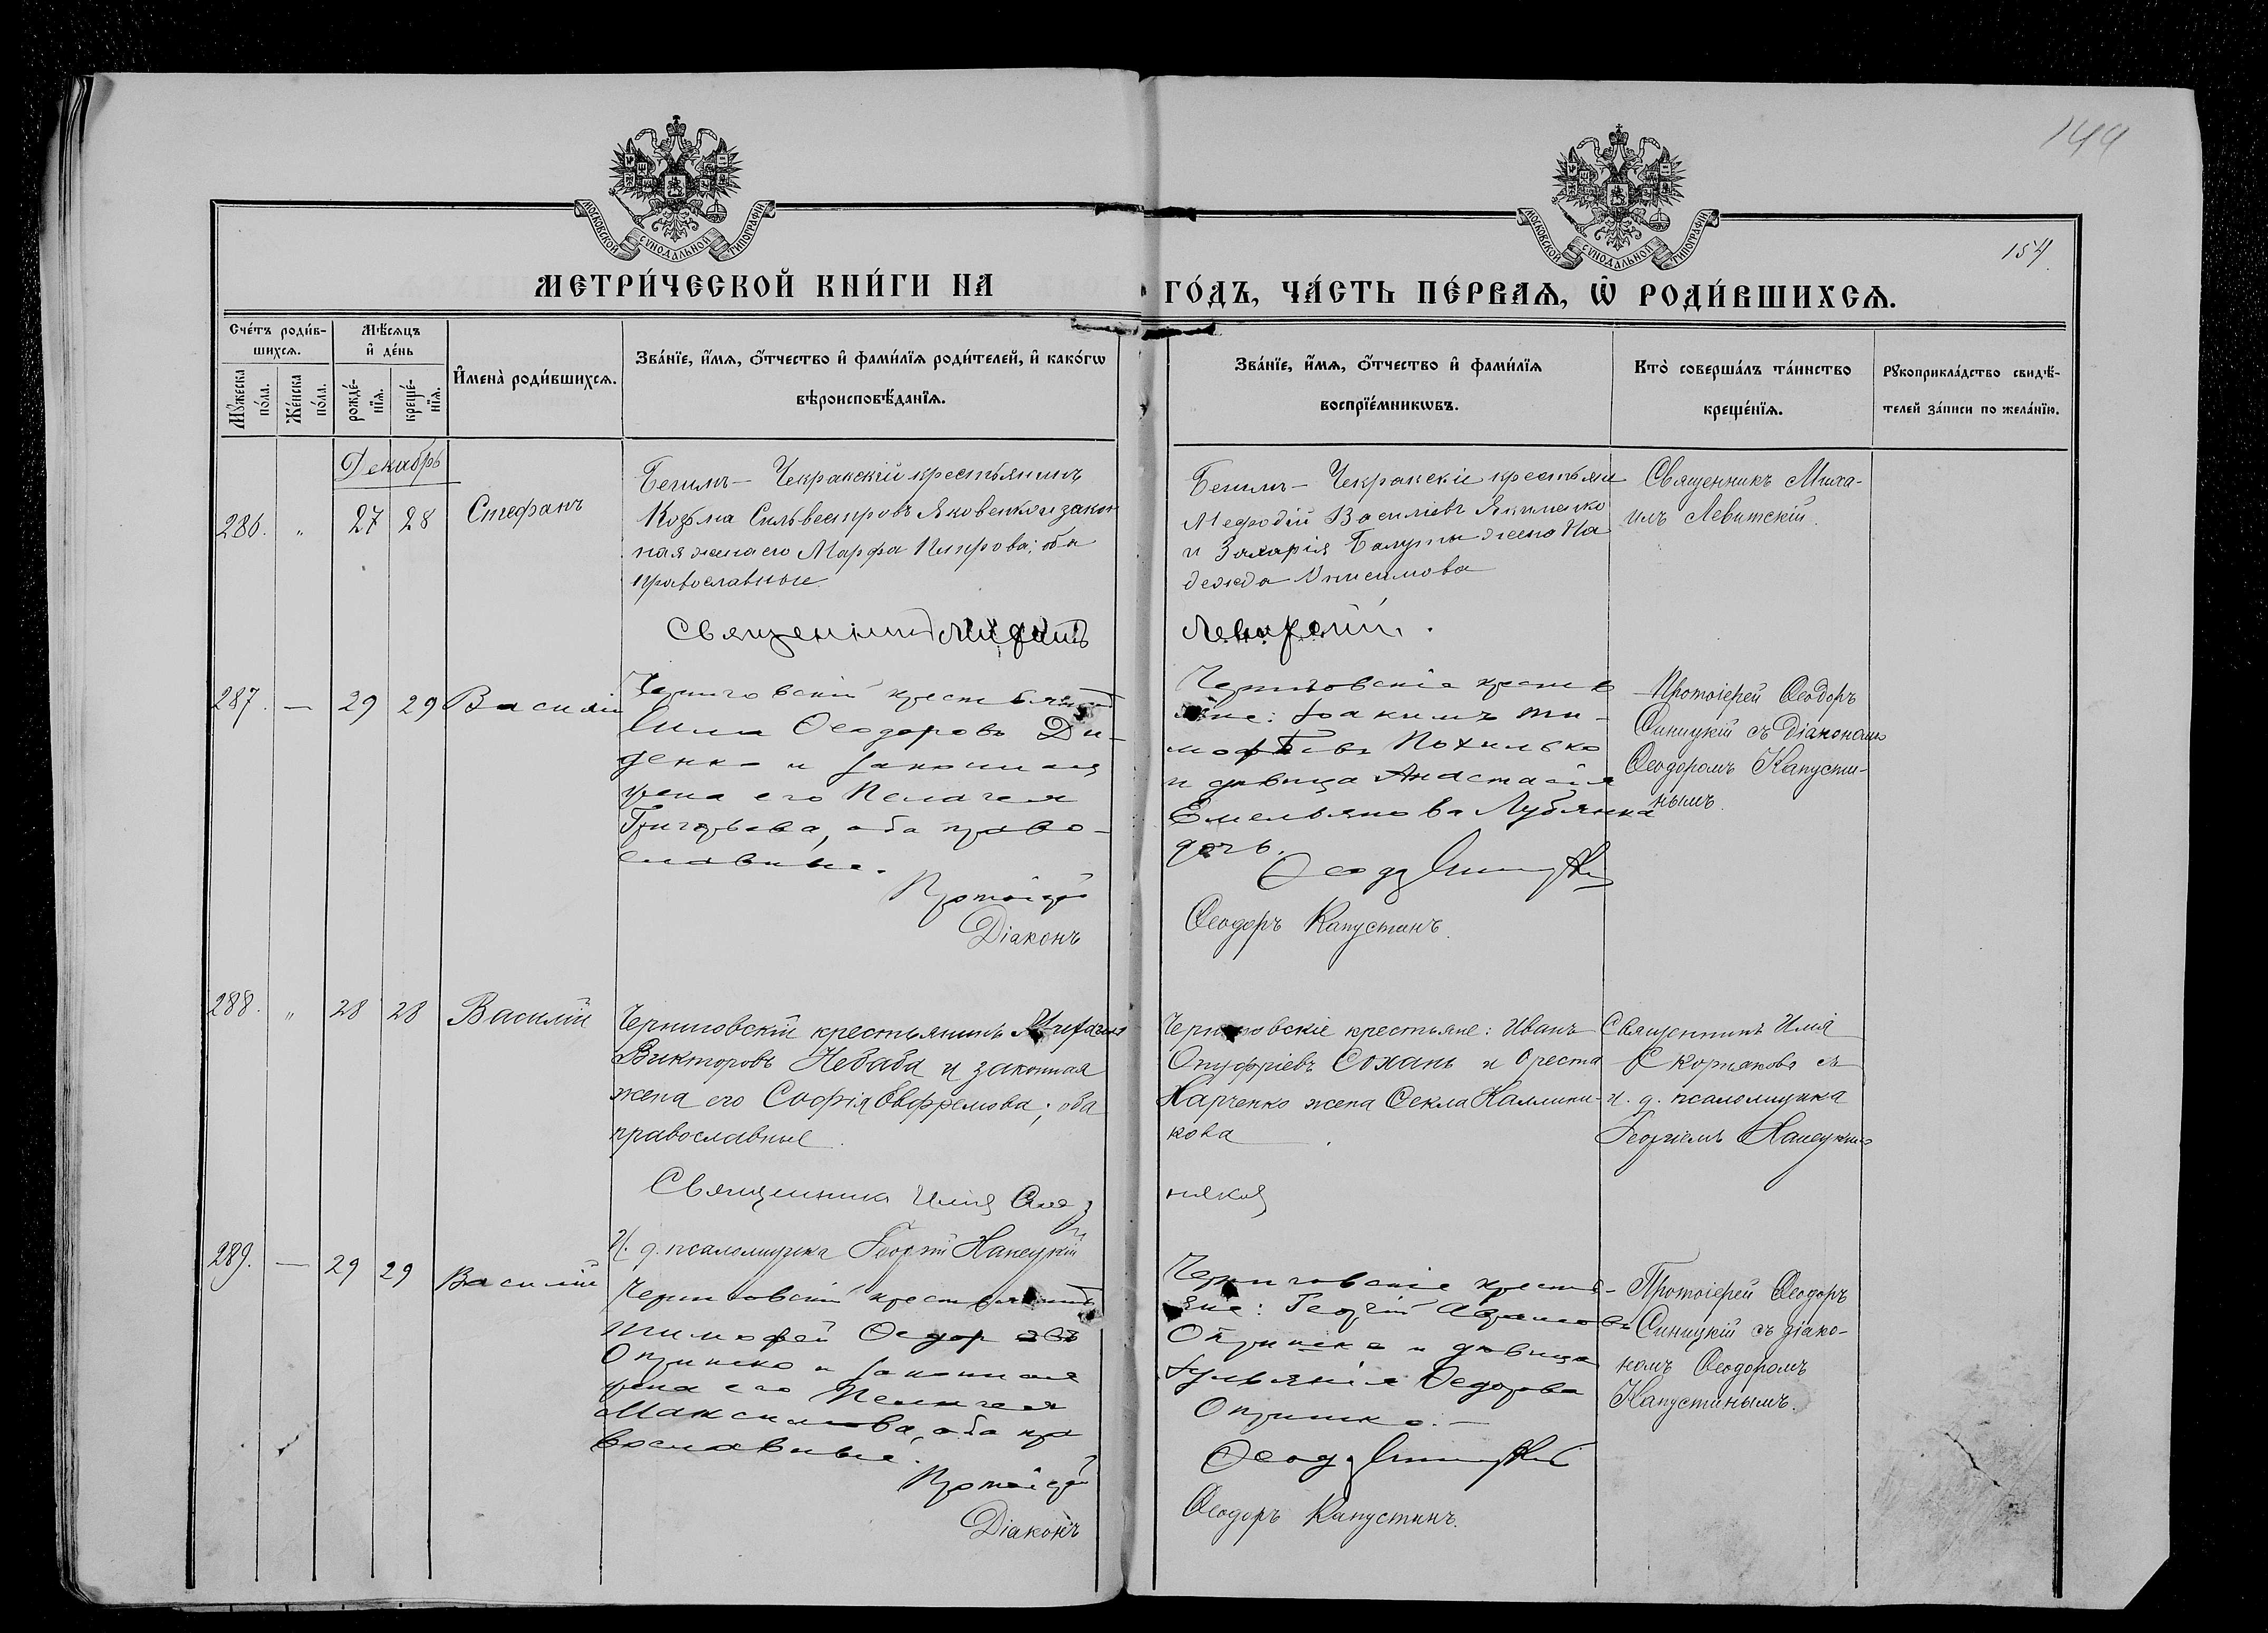 144
154
МОСКОВСКОЙ СѴНОДАЛЬНОЙ ТИПОГРАФІИ
МОСКОВСКОЙ СѴНОДАЛЬНОЙ ТИПОГРАФІИ
МЕТРИ́ЧЕСКОЙ КНИ́ГИ НА
ГО́ДЪ, ЧА́СТЬ ПЕ́РВАѦ, Ѽ РОДИ́ВШИХСѦ.
Сче́тъ роди́в-
шихсѧ.
Мѣ́сѧцъ
и҆ де́нь
Мꙋ́жеска
по́ла.
Же́нска
по́ла.
рожде́-
нїѧ.
креще́-
нїѧ.
И҆мена̀ роди́вшихсѧ.
Зва́нїе, и҆́мѧ, ѻ҆́тчество и҆ фами́лїѧ роди́телей, и҆ како́гѡ
вѣроисповѣ́данїѧ.
Зва́нїе, и҆́мѧ, ѻ҆́тчество и҆ фами́лїѧ
воспрїе́мникѡвъ.
Кто̀ соверша́лъ та́инство
креще́нїѧ.
Рꙋкоприкла́дство свидѣ́-
телей за́писи по жела́нїю.
Декабрь
286. " 27 28 Стефанъ
Бегимъ - Чекракскій крестьянинъ
Козьма Сильвестровъ Яковенко и закон
ная жена его Марфа Петрова; оба
православные
Бегимъ - Чекракскіе крестьяне
Мефодій Василіевъ Якименко
и Захарія жена На
дежда Анисимова
Священникъ Миха-
илъ Левитскій.
Священникъ Михаилъ
Левитскій.
287. — 29 29 Василій
Черниговскій крестьянинъ
Сила Ѳеодоровъ Ди-
денко и законная
жена его Пелагея
Григорьева, оба право-
славные.
Протоіерей
Діаконъ
Черниговскіе крестья
яне: Іоакимъ Ти-
мофѣевъ Похилько
и дѣвица Анастасія
Емельянова Лубянка
дочь.
Ѳеодоръ Синицкій
Ѳеодоръ Капустинъ.
Протоіерей Ѳеодоръ
Синицкій съ Діакономъ
Ѳеодоромъ Капусти-
нымъ.
288. " 28 28 Василій
Черниговскій крестьянинъ
Викторовъ Небаба и законная
жена его Софія Евфремова; оба
православные.
Священникъ Илія
И. д. псаломщика Георгій Ханецкій
Черниговскіе крестьяне: Иванъ
Онуфріевъ Сохань и Ореста
Харченко жена Ѳекла Каллини-
кова
Священникъ Илія
съ
и. д. псаломщика
Георгіемъ Ханецкимъ
289. — 29 29 Василій
Черниговскій крестьянинъ
Тимофей Ѳедоровъ
Опришко и законная
жена его Пелагея
Максимова, оба пра
вославные.
Протоіерей
Діаконъ
Черниговскіе крестья-
яне: Георгій
Опришко и дѣвица
Іульянія Ѳедорова
Опришко. —
Ѳеодоръ Синицкій
Ѳеодоръ Капустинъ.
Протоіерей Ѳеодоръ
Синицкій съ діако-
номъ Ѳеодоромъ
Капустинымъ.